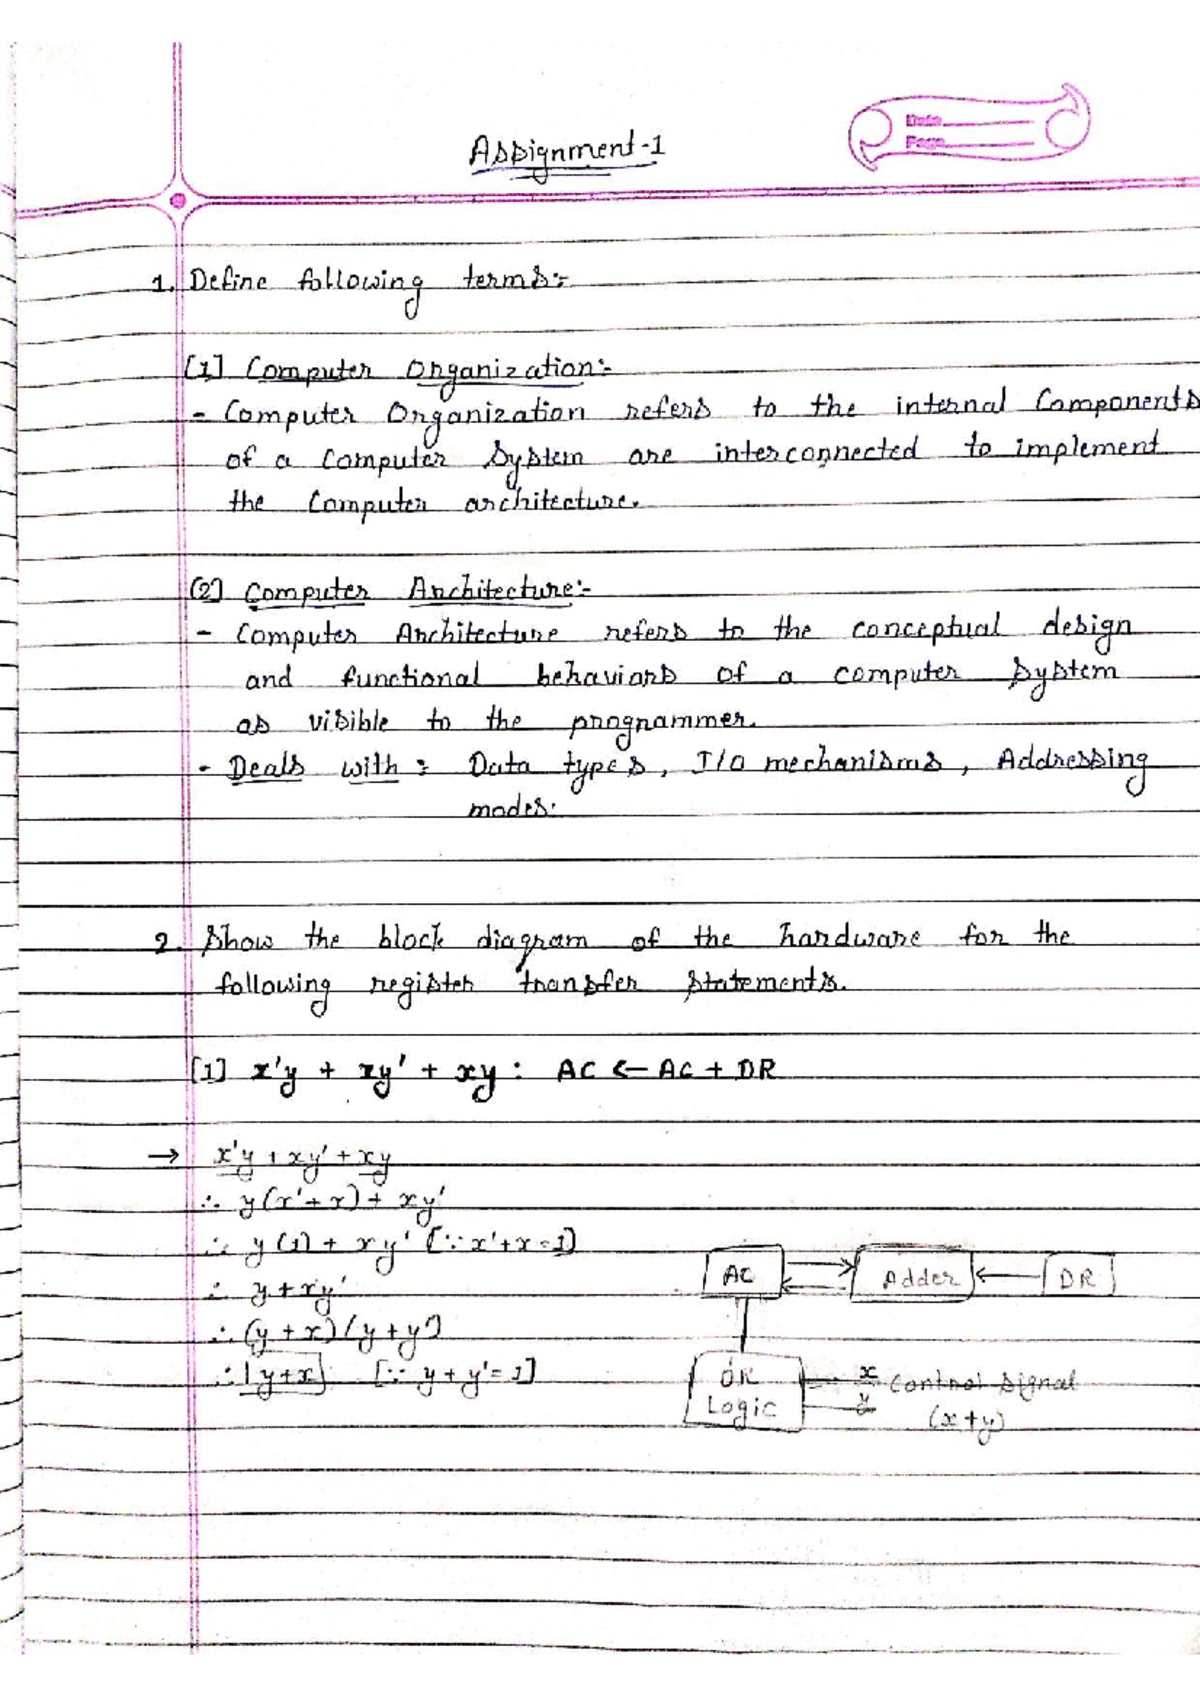 Date
Page
Assignment-1
1. Define following terms:-
[1] Computer Organization:-
- Computer Organization refers to the internal Components
of a computer System are interconnected to implement
the Computer architecture.
(2) Computer Architecture:-
- Computer Architecture refers to the conceptual design
and functional behaviors of a computer system
as visible to the programmer.
- Deals with : Data types, I/O mechanisms, Addressing
modes.
2. Show the block diagram of the hardware for the
following register transfer statements.
[1] x'y + xy' + xy : AC ← AC + DR
→ x'y + xy' + xy
∴ y(x'+x) + xy'
∴ y(1) + xy' [∵ x'+x=1]
∴ y + xy'
∴ (y+x)(y+y')
∴ y+x [∵ y+y'=1]
AC Adder DR
OR Logic
x
y
Control signal
(x+y)